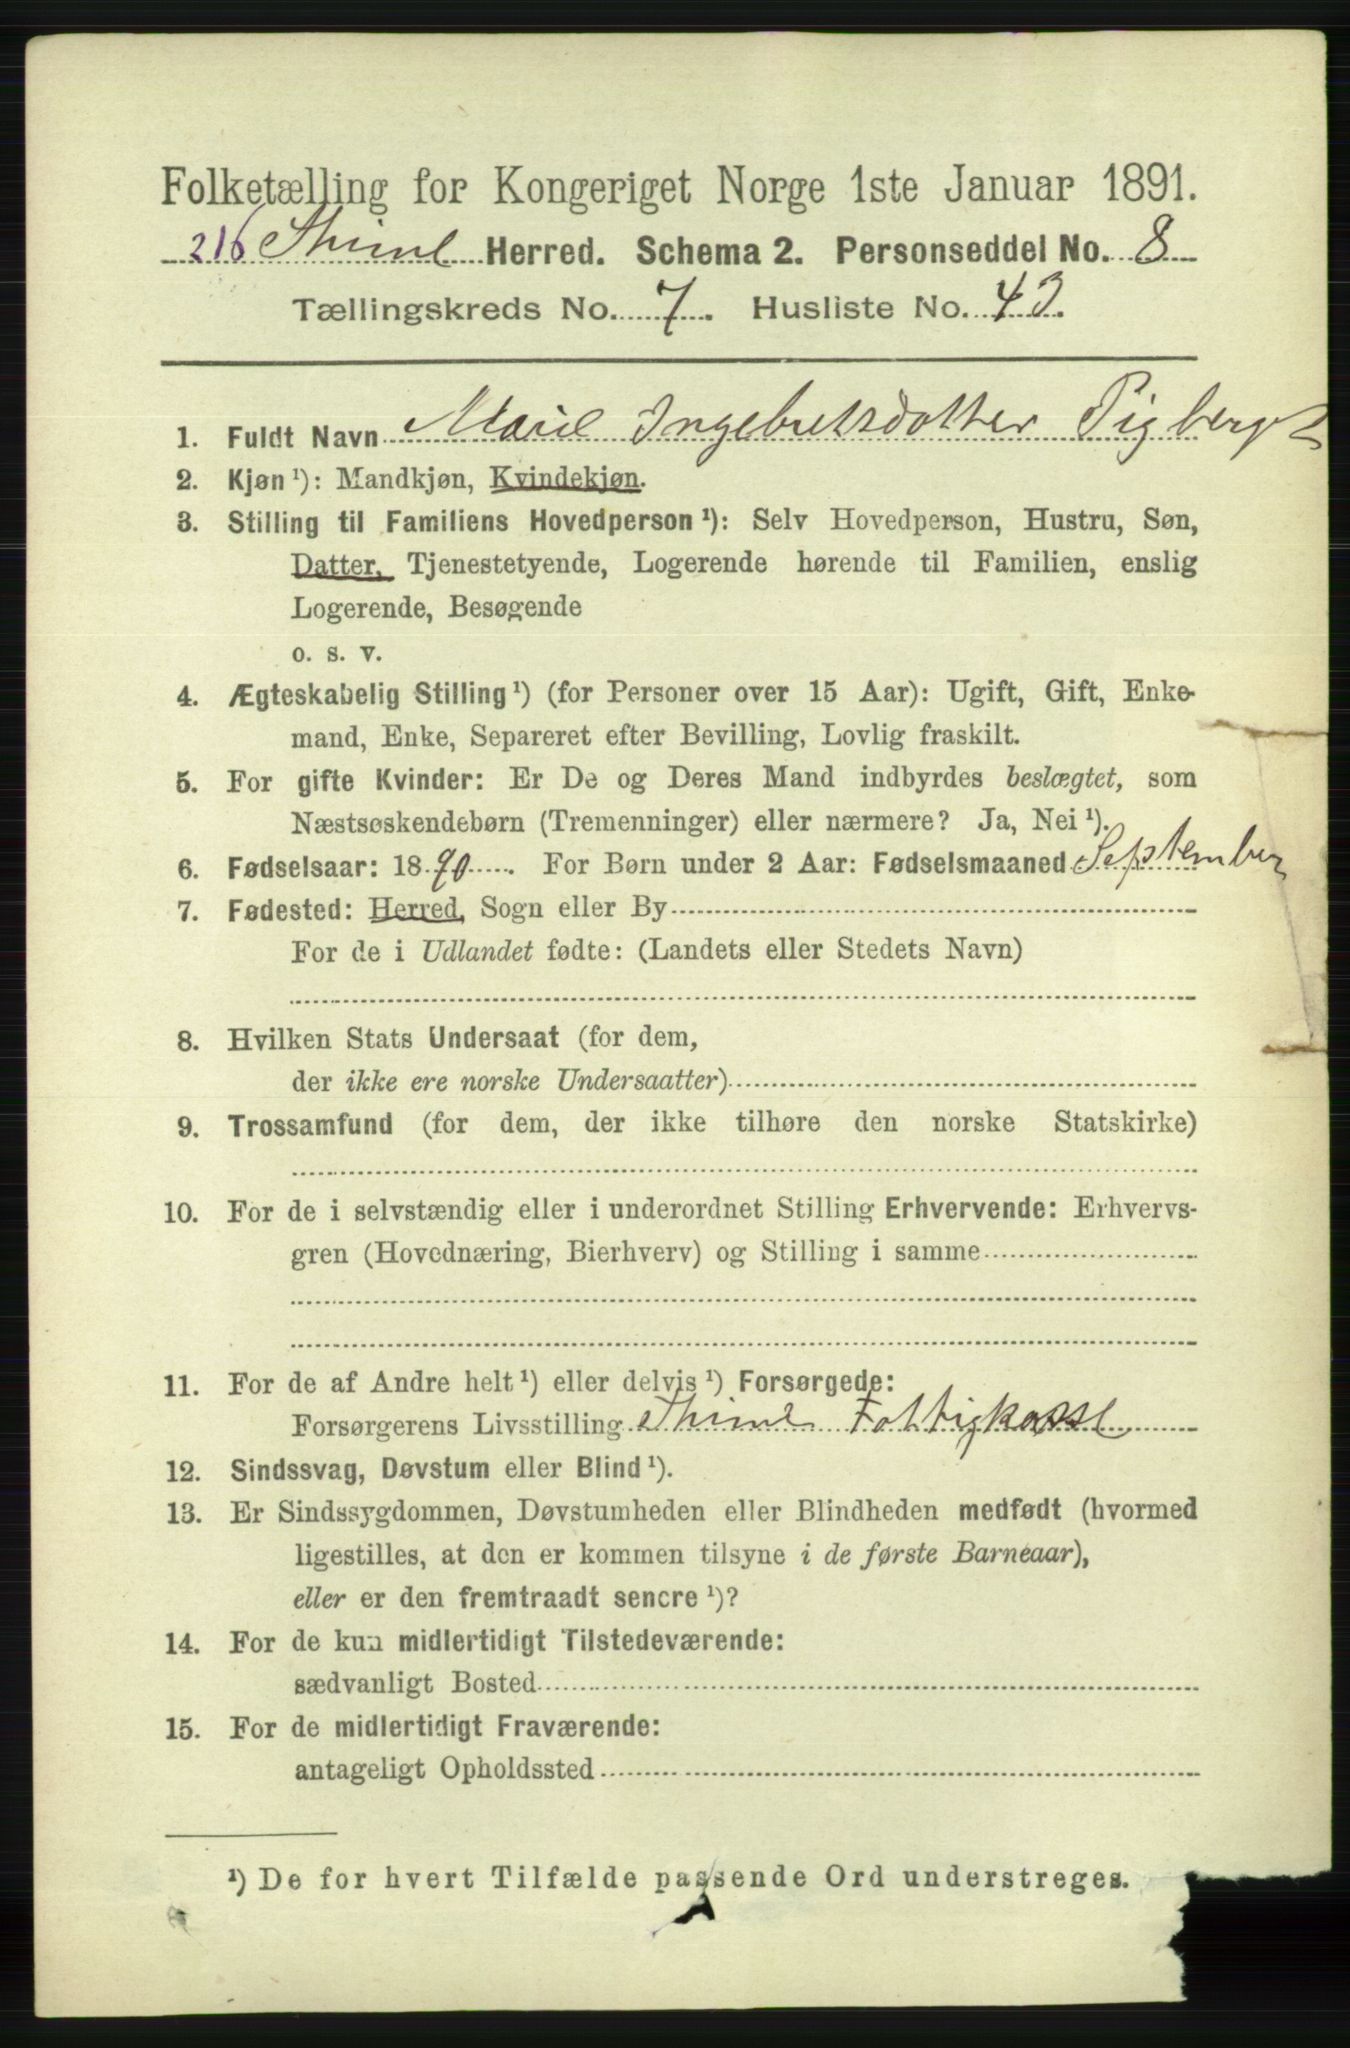 Folketælling for Kongeriget Norge 1ste Januar 1891.
216 Thime Herred. Schema 2. Personseddel No. 8
Tællingskreds No. 7. Husliste No. 43.
1. Fuldt Navn Marie Ingebretsdatter Pigberget
2. Kjøn ¹): Mandkjøn, Kvindekjøn.
3. Stilling til Familiens Hovedperson ¹): Selv Hovedperson, Hustru, Søn,
Datter, Tjenestetyende, Logerende hørende til Familien, enslig
Logerende, Besøgende
o. s. v.
4. Ægteskabelig Stilling ¹) (for Personer over 15 Aar): Ugift, Gift, Enke-
mand, Enke, Separeret efter Bevilling, Lovlig fraskilt.
5. For gifte Kvinder: Er De og Deres Mand indbyrdes beslægtet, som
Næstsøskendebørn (Tremenninger) eller nærmere? Ja, Nei ¹).
6. Fødselsaar: 1890. For Børn under 2 Aar: Fødselsmaaned September
7. Fødested: Herred, Sogn eller By
For de i Udlandet fødte: (Landets eller Stedets Navn)
8. Hvilken Stats Undersaat (for dem,
der ikke ere norske Undersaatter)
9. Trossamfund (for dem, der ikke tilhøre den norske Statskirke)
10. For de i selvstændig eller i underordnet Stilling Erhvervende: Erhvervs-
gren (Hovednæring, Bierhverv) og Stilling i samme
11. For de af Andre helt ¹) eller delvis ¹) Forsørgede:
Forsørgerens Livsstilling Thime Fattigkasse
12. Sindssvag, Døvstum eller Blind ¹).
13. Er Sindssygdommen, Døvstumheden eller Blindheden medfødt (hvormed
ligestilles, at den er kommen tilsyne i de første Barneaar),
eller er den fremtraadt senere ¹)?
14. For de kun midlertidigt Tilstedeværende:
sædvanligt Bosted
15. For de midlertidigt Fraværende:
antageligt Opholdssted
¹) De for hvert Tilfælde passende Ord understreges.